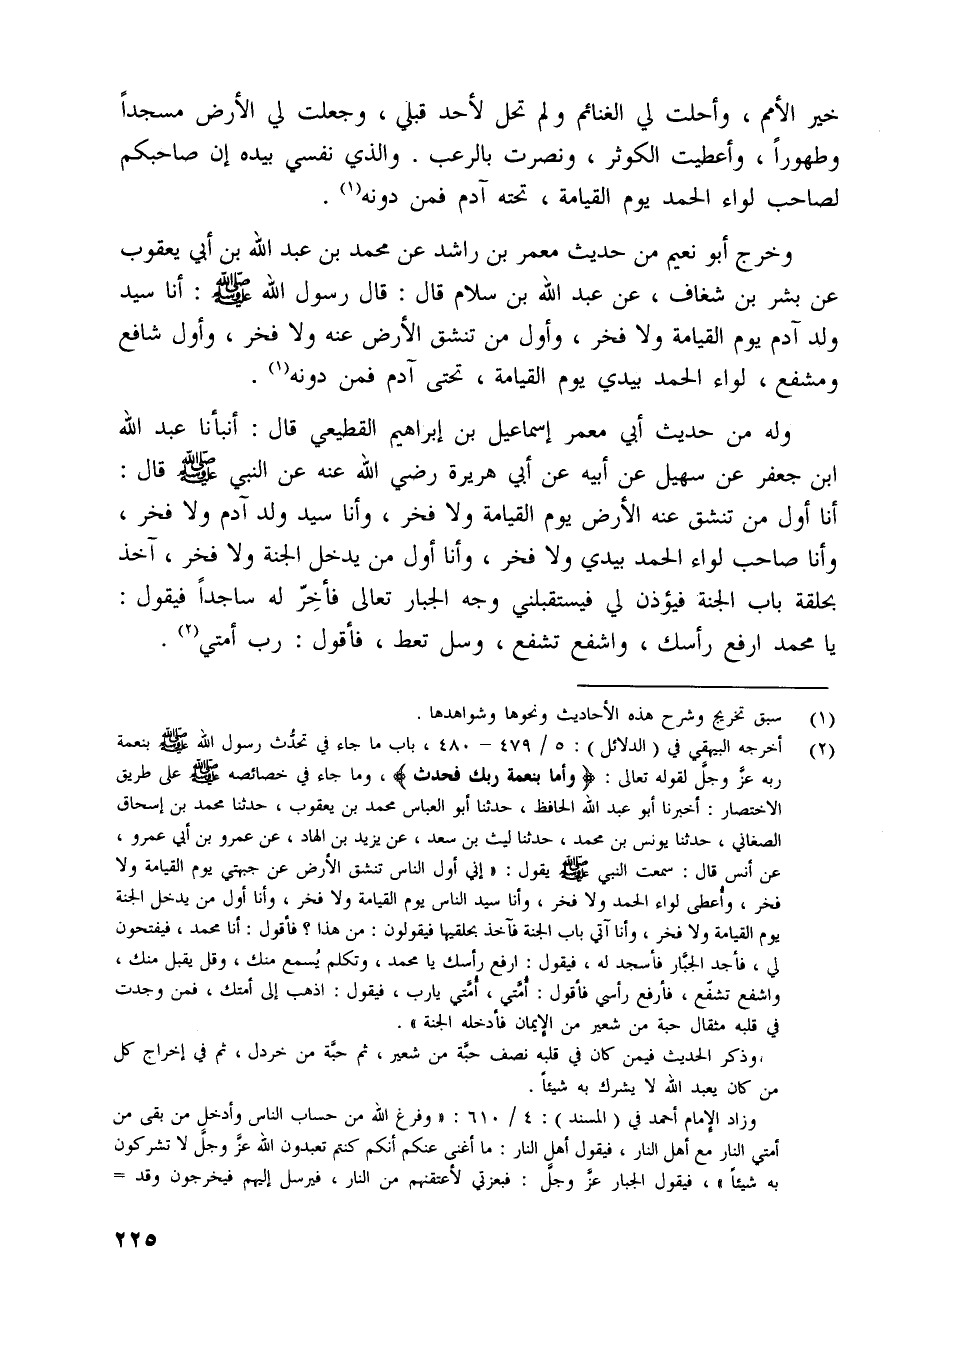 خير الأمم ، وأحلت لي الغنائم ولم تحل لأحد قبلي ، وجعلت لي الأرض مسجداً
وطهوراً ، وأعطيت الكوثر ، ونصرت بالرعب . والذي نفسي بيده إن صاحبكم
لصاحب لواء الحمد يوم القيامة ، تحته آدم فمن دونه(١) .
وخرج أبو نعيم من حديث معمر بن راشد عن محمد بن عبد الله بن أبي يعقوب
عن بشر بن شغاف ، عن عبد الله بن سلام قال : قال رسول الله ﷺ : أنا سيد
ولد آدم يوم القيامة ولا فخر ، وأول من تنشق الأرض عنه ولا فخر ، وأول شافع
ومشفع ، لواء الحمد بيدي يوم القيامة ، تحتى آدم فمن دونه(١) .
وله من حديث أبي معمر إسماعيل بن إبراهيم القطيعي قال : أنبأنا عبد الله
ابن جعفر عن سهيل عن أبيه عن أبي هريرة رضي الله عنه عن النبي ﷺ قال :
أنا أول من تنشق عنه الأرض يوم القيامة ولا فخر ، وأنا سيد ولد آدم ولا فخر ،
وأنا صاحب لواء الحمد بيدي ولا فخر ، وأنا أول من يدخل الجنة ولا فخر ، آخذ
بحلقة باب الجنة فيؤذن لي فيستقبلني وجه الجبار تعالى فأخِرّ له ساجداً فيقول :
يا محمد ارفع رأسك ، واشفع تشفع ، وسل تعط ، فأقول : رب أمتي(٢) .
(١) سبق تخريج وشرح هذه الأحاديث ونحوها وشواهدها .
(٢) أخرجه البيهقي في ( الدلائل ) : ٥ / ٤٧٩ – ٤٨٠ ، باب ما جاء في تحدُّث رسول الله ﷺ بنعمة
ربه عزَّ وجلَّ لقوله تعالى : ﴿ وأما بنعمة ربك فحدث ﴾ ، وما جاء في خصائصه ﷺ على طريق
الاختصار : أخبرنا أبو عبد الله الحافظ ، حدثنا أبو العباس محمد بن يعقوب ، حدثنا محمد بن إسحاق
الصغاني ، حدثنا يونس بن محمد ، حدثنا ليث بن سعد ، عن يزيد بن الهاد ، عن عمرو بن أبي عمرو ،
عن أنس قال : سمعت النبي ﷺ يقول : « إني أول الناس تنشق الأرض عن جبهتي يوم القيامة ولا
فخر ، وأُعطى لواء الحمد ولا فخر ، وأنا سيد الناس يوم القيامة ولا فخر ، وأنا أول من يدخل الجنة
يوم القيامة ولا فخر ، وأنا آتي باب الجنة فآخذ بحلقيها فيقولون : من هذا ؟ فأقول : أنا محمد ، فيفتحون
لي ، فأجد الجبَّار فأسجد له ، فيقول : ارفع رأسك يا محمد ، وتكلم يُسمع منك ، وقل يقبل منك ،
واشفع تشفّع ، فأرفع رأسي فأقول : أُمَّتي ، أُمَّتي يارب ، فيقول : اذهب إلى أمتك ، فمن وجدت
في قلبه مثقال حبة من شعير من الإيمان فأدخله الجنة » .
،وذكر الحديث فيمن كان في قلبه نصف حبَّة من شعير ، ثم حبَّة من خردل ، ثم في إخراج كل
من كان يعبد الله لا يشرك به شيئاً .
وزاد الإمام أحمد في ( المسند ) : ٤ / ٦١٠ : « وفرغ الله من حساب الناس وأدخل من بقى من
أمتي النار مع أهل النار ، فيقول أهل النار : ما أغنى عنكم أنكم كنتم تعبدون الله عزَّ وجلَّ لا تشركون
به شيئاً » ، فيقول الجبار عزَّ وجلَّ : فبعزتي لأعتقنهم من النار ، فيرسل إليهم فيخرجون وقد =
٢٢٥